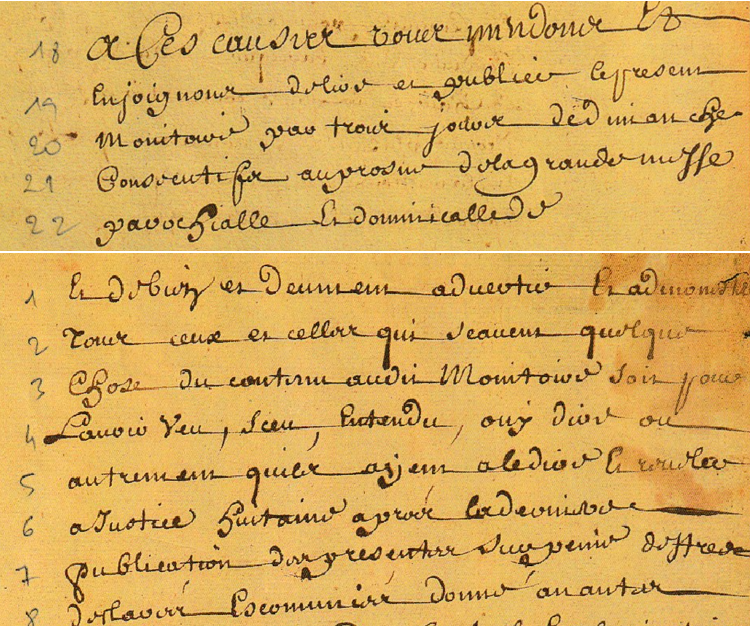 18 A Ces causes vous mandons Et
19 Enjoignons de lire et publier le present
20 Monitoire par trois jours de dimanche
21 Consecutifs au prosne de la grande messe
22 parochialle Et dominicalle de
1 Et de bien et deument advertir Et admonester
2 Tous ceux et celles qui scavent quelque
3 Chose du contenu audit Monitoire soit pour
4 Lavoir veu, sceu, Entendu, ouy dire ou
5 autrement quils ayent a le dire Et reveler
6 a Justice huitaine apres la derniere
7 publication des presentes sur peine destre
8 declarés Escomuniés donné